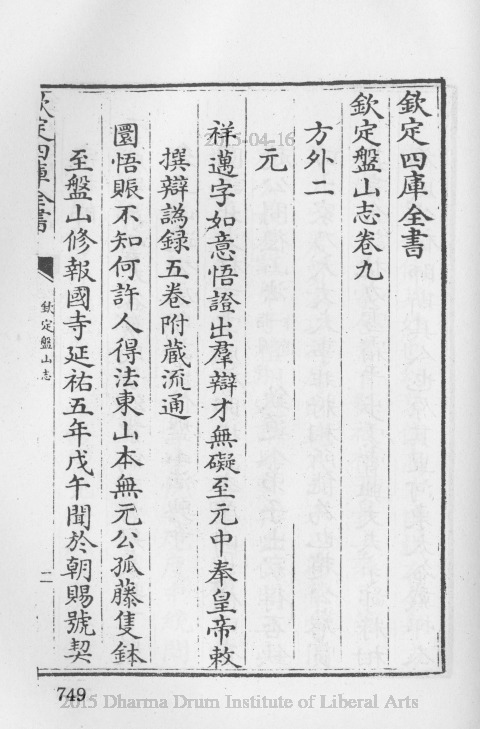 欽定四庫全書
欽定盤山志卷九
方外二
元
祥邁字如意悟證出羣辯才無礙至元中奉皇帝敕
撰辯譌録五卷附藏流通
圜悟賑不知何許人得法東山本無元公孤藤隻鉢
至盤山修報國寺延祐五年戊午聞於朝賜號契
欽定四庫全書
欽定盤山志
二
2015-04-16
749
2015 Dharma Drum Institute of Liberal Arts